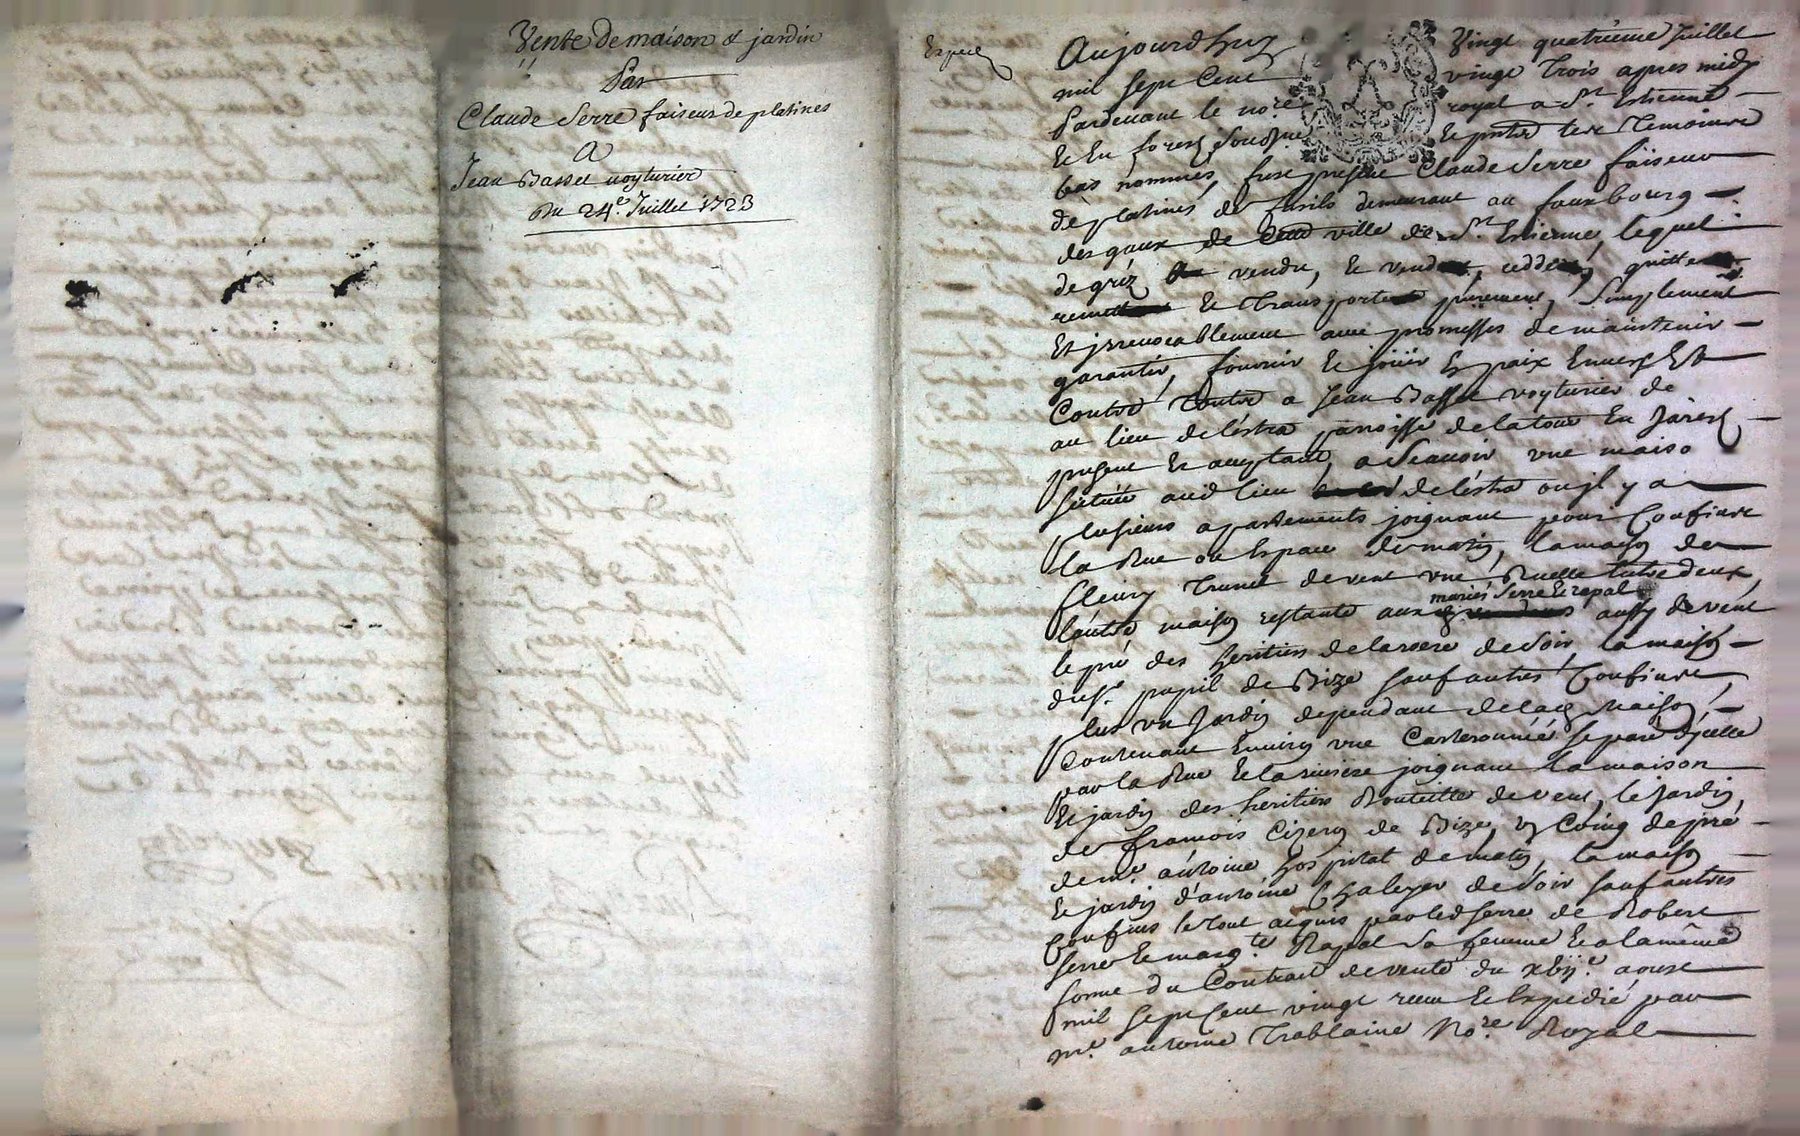 Vente de maison & jardin
Par
Claude Serre faiseur de platines
A
Jean Basset voyturier
Du 24e. Juillet 1723
Expedié
Aujourdhuy Vingt quatrieme Juillet
mil sept Cent vingt Trois apres midy
Pardevant le nore. royal a St. Estienne
Et En forest Et temoins
bas nommés, fust present Claude Serre faiseur
de platines de fusils demeurant au fauxbourg
des gaux de ville de St. Estienne, lequel
de gré vendu, Et vend, cedde, quitte
remet Et Transporte purement, Simplement
Et jrrevocablement avec promesses de maintenir
garantir, fournir Et joüir En paix Envers Et
Contre toutes a Jean Basset voyturier de
au lieu de léstra parroisse de latour En Jarest
present Et acceptant, a Scauoir vne maiso
scituée aud lieu de léstra ou jl y a
plusieurs apartements joignant pour Confins
la Rue ou Espace de matin, la maison de
fleury Trunel de vent vne Ruelle Entre deux,
mariés Serre Et rapal
l'autre maison restante aux aussy de vent
le pré des heritiers de larore de soir, la maison
dud Sr. papil de Bize sauf autres Confins,
plus vn Jardin dependant de lad Maison,
Contenant Environ vne Cartonnée separé d'jcelle
par la Rue Et la riuiere joignant la maison
Et jardin des heritiers Bouteille de vent, le Jardin
de francois Cizeron de Bize, vn Coing de pré
de me. antoine hospital de matin, la maison
Et jardin d'antoine Chaleyer de soir sauf autres
Confins le tout acquis par led Serre de Robert
Serre Et margte. Rapal sa femme Et a la même
forme du Contrait de vente du xbije. aoust
mil sept Cent vingt receu Et Expedié par
me. antoine Trablaine Nore. Royal